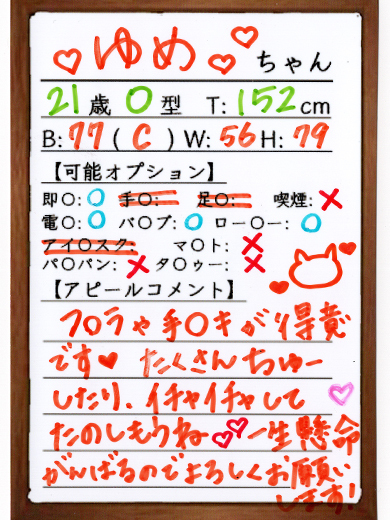 ♡ゆめ♡♡ちゃん
21歳 O型 T:152cm
B:77(C)W:56H:79
【可能オプション】
即〇:〇 手〇: 足〇: 喫煙:×
電〇:〇 バ〇ブ:〇 ロー〇ー:〇
アイ〇スク: マ〇ト:×
パ〇パン:× タ〇ゥー:×
【アピールコメント】
フ〇ラや手〇キが得意
です♥ たくさんちゅー
したり、イチャイチャして
たのしもうね♡♡一生懸命
がんばるのでよろしくお願い
します!